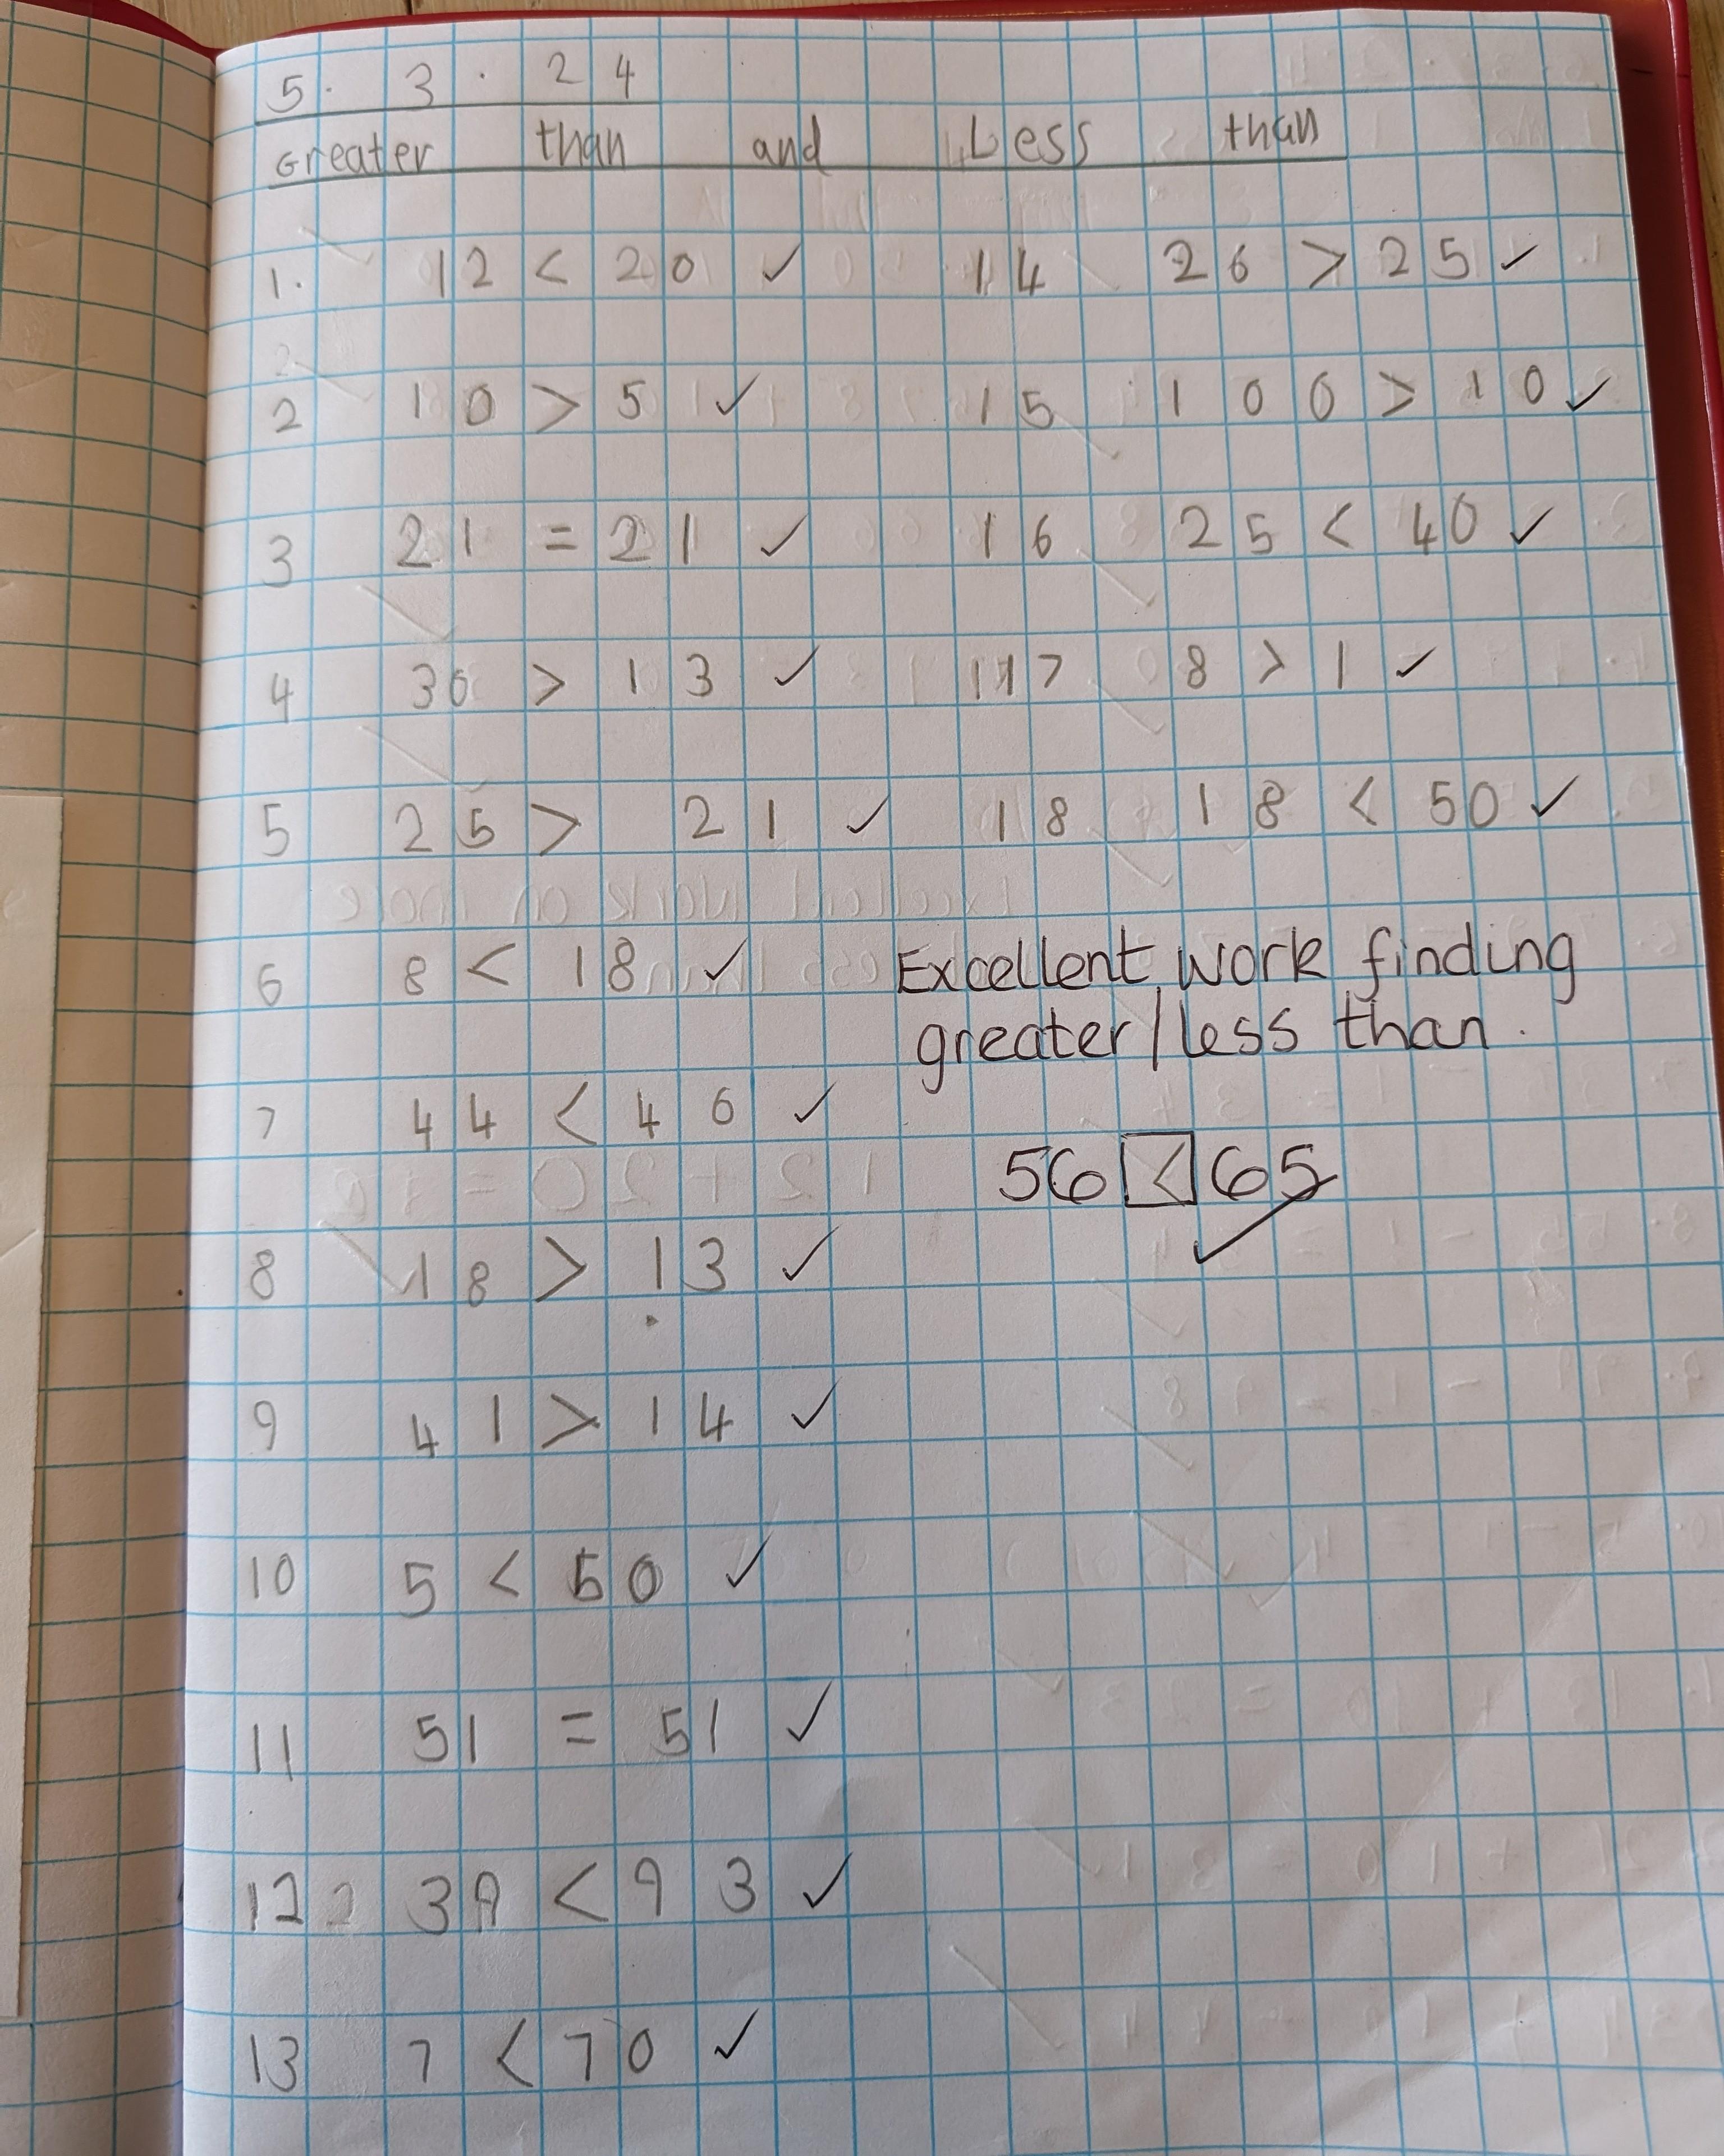 5. 3. 24
Greater than and Less than
1. 12 < 20 ✓
2 10 > 5 ✓
3 21 = 21 ✓
4 30 > 13 ✓
5 25 > 21 ✓
6 8 < 18 ✓
7 44 < 46 ✓
8 18 > 13 ✓
9 41 > 14 ✓
10 5 < 50 ✓
11 51 = 51 ✓
12 39 < 93 ✓
13 7 < 70 ✓
14 26 > 25 ✓
15 100 > 10 ✓
16 25 < 40 ✓
17 8 > 1 ✓
18 18 < 50 ✓
Excellent work finding
greater/less than.
56 < 65 ✓